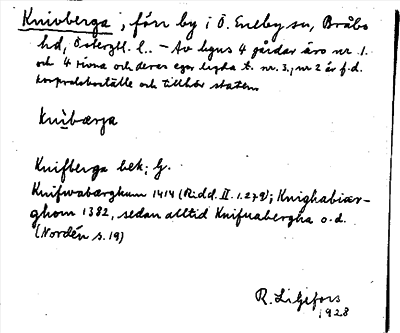 Knivberga, förr by i Ö. Eneby sn, Bråbo
hd, Östergtl. l. - Av byns 4 gårdar äro nr 1.
och 4 rivna och deras egor lagda t. nr. 3., nr 2 är f.d.
korpralsboställe och tillhör staten.
Knìbærja
Knifberga bek; G.
Knifwabærghum 1414 (Ridd. II. 1.279); Knighabiær-
ghom 1382, sedan alltid Knifuabergha o.d.
(Nordén s. 19)
R. Liljefors
1928